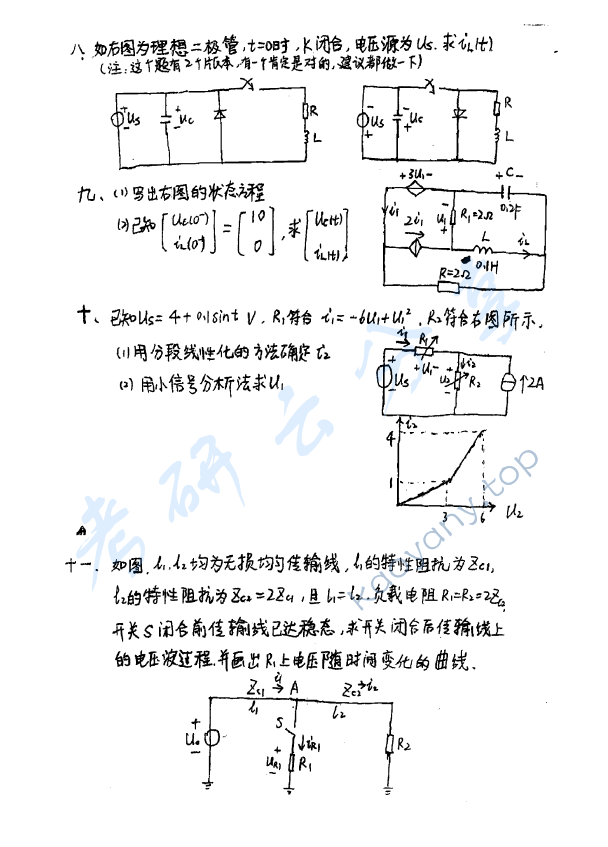 八、如右图为理想二极管,t=0时,K闭合,电压源为Us.求iL(t)
(注:这个题有2个版本,有一个肯定是对的,建议都做一下)
+ Us - + Uc - R L
- Us + - Uc + R L
九、(1)写出右图的状态方程
(2)已知[Uc(0⁻) iL(0⁻)]=[10 0],求[Uc(t) iL(t)]
+3U1- + C - 0.2F
i1 2i1 - U1 + R1=2Ω L iL 0.1H
R=2Ω
十、已知Us=4+0.1sint V,R1符合 i1=-6U1+U1²,R2符合右图所示.
(1)用分段线性化的方法确定i2
(2)用小信号分析法求U1
i1 R1 +U1- + Us - + U2 - i2 R2 ↑2A
i2
4
1
3 6 U2
十一. 如图,l1.l2均为无损均匀传输线,l1的特性阻抗为Zc1,
l2的特性阻抗为Zc2=2Zc1,且l1=l2.负载电阻R1=R2=2Zc2,
开关S闭合前传输线已达稳态,求开关闭合后传输线上
的电压波过程.并画出R1上电压随时间变化的曲线.
Zc1 i1 A Zc2 i2
l1 l2
+ U0 - S iR1 + UR1 - R1 R2
考研云分享
kaoyany.top